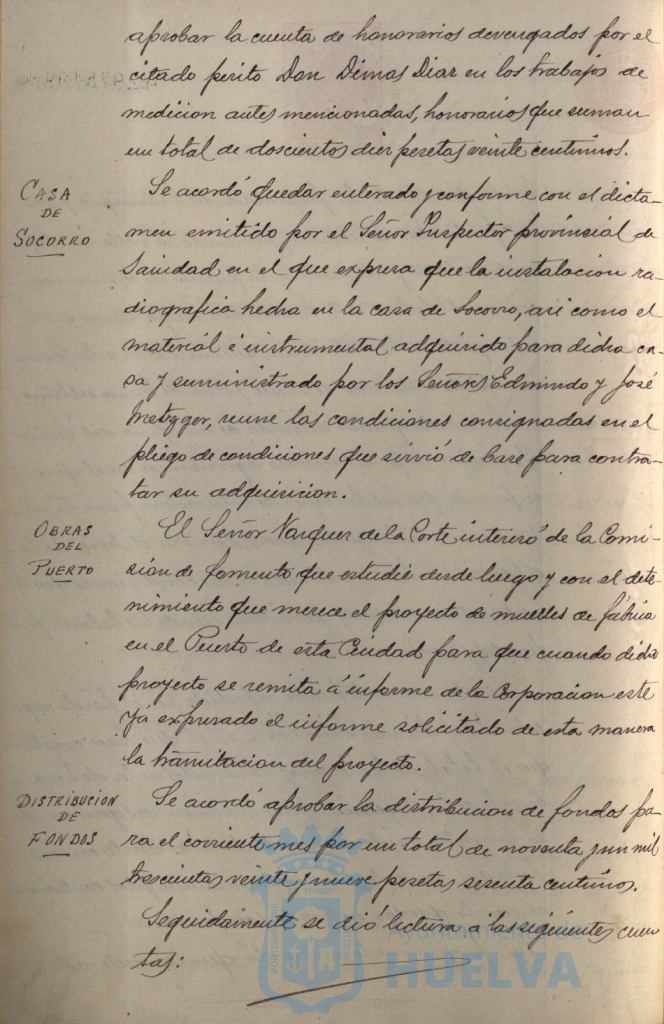 aprobar la cuenta de honorarios devengados por el
citado perito Don Dimas Diaz en los trabajos de
medicion antes mencionadas, honorarios que suman
un total de doscientos diez pesetas veinte centimos.
CASA
DE
SOCORRO
Se acordó quedar enterado y conforme con el dicta-
men emitido por el Señor Inspector provincial de
Sanidad en el que expresa que la instalacion ra-
diografica hecha en la casa de Socorro, asi como el
material é instrumental adquirido para dicha ca-
sa y suministrado por los Señores Edmundo y José
Metzger, reune las condiciones consignadas en el
pliego de condiciones que sirvió de base para contra-
tar su adquisicion.
OBRAS
DEL
PUERTO
El Señor Vazquez de la Corte interesó de la Comi-
sion de fomento que estudie desde luego y con el dete-
nimiento que merece el proyecto de muelles de fábrica
en el Puerto de esta Ciudad para que cuando dicho
proyecto se remita á informe de la Corporacion este
yá expresado el informe solicitado de esta manera
la tramitacion del proyecto.
DISTRIBUCION
DE
FONDOS
Se acordó aprobar la distribucion de fondos pa-
ra el corriente mes por un total de noventa y un mil
trescientas veinte y nueve pesetas sesenta centimos.
Seguidamente se dió lectura á las siguientes cuen
tas:
Ayuntamiento
HUELVA